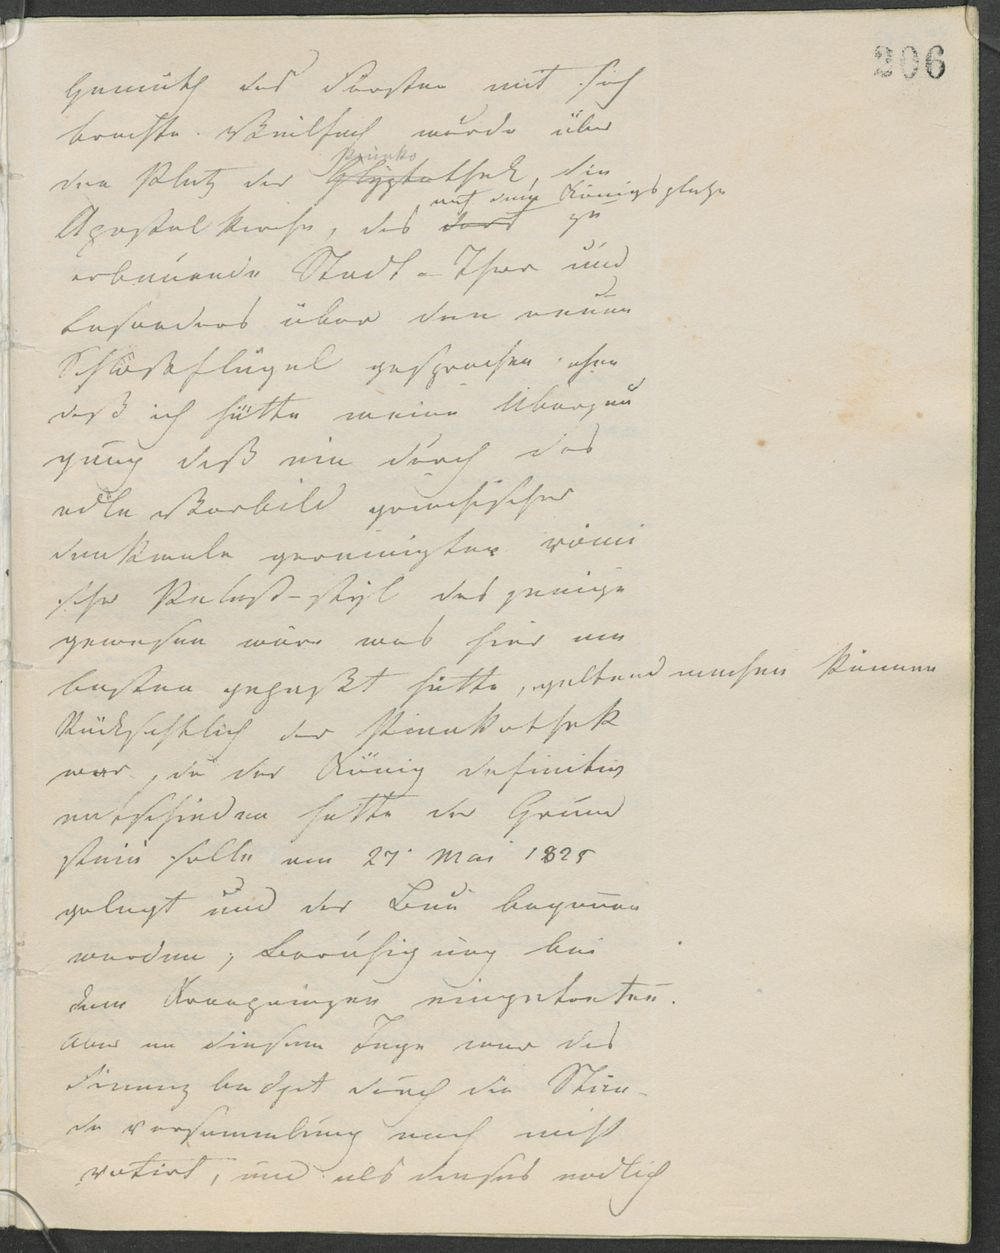 206
Gemüth des Fürsten mit sich
brachte. Vielfach wurde über
den Platz der Glyptothek, die
Pinako
Apostelkirche, des dort zu
auf dem Königsplatze
erbauende Stadt-Thor und
besonders über den neuen
Schloßflügel gesprochen ohne
daß ich hätte meine Uberzeu
gung daß ein durch das
edle Vorbild griechischer
denkmale gereinigter römi
scher Palast-styl das jenige
gewesen wäre was hier am
besten gepaßt hätte, geltend machen können
Rücksichtlich der Pinakothek
war, da der König definitiv
entschieden hatte der Grund
stein solle am 27. Mai 1825
gelegt und der Bau begonnen
werden, Beruhigung bei
dem Kronprinzen eingetreten.
Aber an diesem Tage war das
Finanz budget durch die Stän-
de versammlung noch nicht
votirt, und als dieses endlich